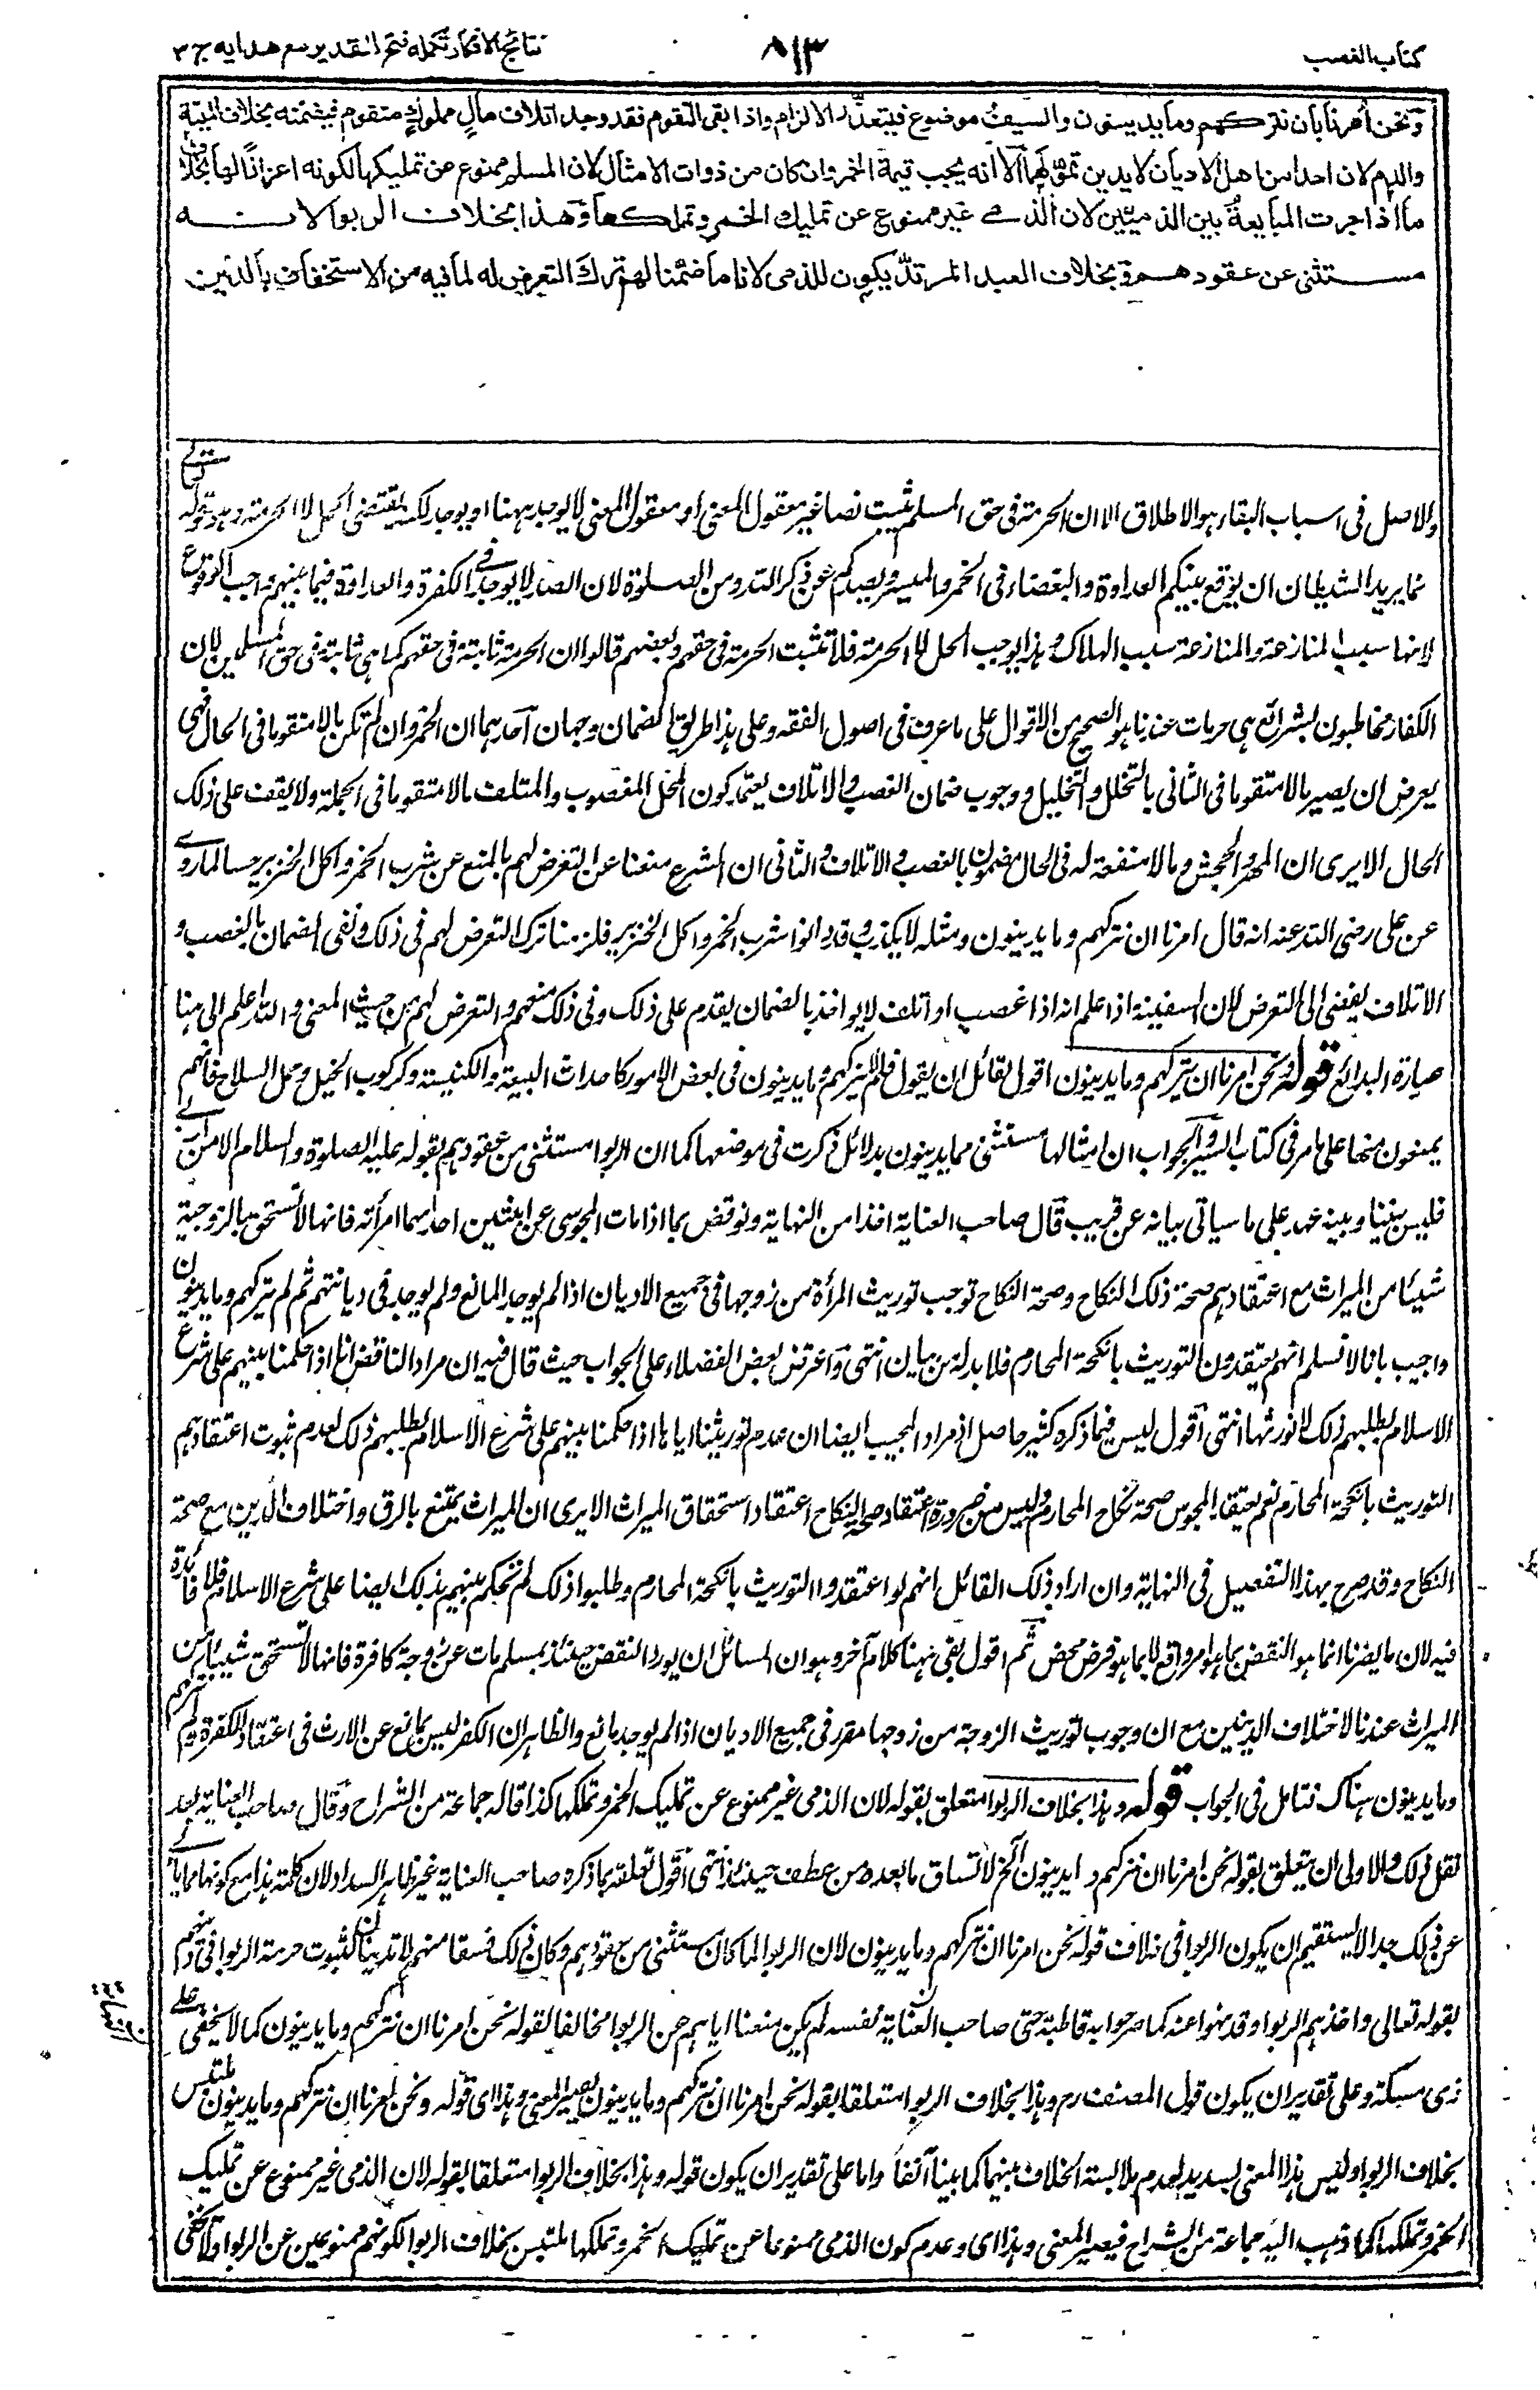 كتاب الغصب
٨١٣
نتائج الافكار تكمله فتح القدير مع هدايه ج ٣
ونحن أُمرنا بأن نتركهم وما يدينون والسيف موضوع فيتعذر الالزام واذا بقى التقوم فقد وجد اتلاف مالٍ مملوكٍ متقوم فيضمنه بخلاف الميتة
والدم لان احدا من اهل الاديان لا يدين تموّلهما الا انه يجب قيمة الخمر وان كان من ذوات الامثال لان المسلم ممنوع عن تمليكها لكونه اعزازًا لها بخلاف
ما اذا جرت المبايعةُ بين الذميّين لان الذمي غير ممنوع عن تمليك الخمر وتملكها وهذا بخلاف الربوا لانه
مستثنى عن عقودهم وبخلاف العبد المرتدّ يكون للذمى لانا ما ضمنا لهم ترك التعرض له لما فيه من الاستخفاف بالدين
والاصل فى اسباب البقاء هو الاطلاق الا ان الحرمة فى حق المسلم ثبت نصا غير معقول المعنى او معقول المعنى لا يوجد ههنا او يوجد لكنه يقتضى الحل لا الحرمة وهو قوله تعالى
انما يريد الشيطان ان يوقع بينكم العداوة والبغضاء فى الخمر والميسر ويصدكم عن ذكر الله وعن الصلوة لان الصد لا يوجد فى الكفرة والعداوة فيما بينهم واجب الوقوع
لانها سبب المنازعة والمنازعة سبب الهلاك وهذا يوجب الحل لا الحرمة فلا تثبت الحرمة فى حقهم وبعضهم قالوا ان الحرمة ثابتة فى حقهم كما هى ثابتة فى حق المسلمين لان
الكفار مخاطبون بشرائع هى حرمات عندنا هو الصحيح من الاقوال على ما عرف فى اصول الفقه وعلى هذا طريق الضمان وجهان احدهما ان الخمر وان لم تكن مالا متقوما فى الحال فهى
بعرض ان يصير مالا متقوما فى الثانى بالتخلل والتخليل ووجوب ضمان الغصب والاتلاف يعتمد كون المحل المغصوب والمتلف مالا متقوما فى الجملة ولا يقف على ذلك
الحال الا يرى ان المهر والجحش وما لا منفعة له فى الحال مضمون بالغصب والاتلاف والثانى ان الشرع منعنا عن التعرض لهم بالمنع عن شرب الخمر واكل الخنزير حسا لما روى
عن على رضى الله عنه انه قال امرنا ان نتركهم وما يدينون ومثله لا يكذب وقد دانوا شرب الخمر واكل الخنزير فلزمنا ترك التعرض لهم فى ذلك ونفى الضمان بالغصب و
الاتلاف يفضى الى التعرض لان السفينة اذا علم انه اذا غصب او اتلف لا يواخذ بالضمان يقدم على ذلك وفى ذلك منعهم والتعرض لهم من حيث المعنى والله اعلم الى هنا
عبارة البدائع قوله ونحن امرنا ان نتركهم وما يدينون اقول لقائل ان يقول فلم لم نتركهم وما يدينون فى بعض الامور كاحداث البيعة والكنيسة وكركوب الخيل وحمل السلاح فانهم
يمنعون منها على ما مر فى كتاب السير والجواب ان امثالها مستثنى مما يدينون بدلائل ذكرت فى موضعها كما ان الربوا مستثنى من عقودهم بقوله عليه الصلوة والسلام الا من اربى
فليس بيننا وبينه عهد على ما سياتى بيانه عن قريب قال صاحب العناية اخذا من النهاية ونوقض بما اذا مات المجوسى عن ابنتين احداهما امرأته فانها لا تستحق بالزوجية
شيئا من الميراث مع اعتقادهم صحة ذلك النكاح وصحة النكاح توجب توريث المرأة من زوجها فى جميع الاديان اذا لم يوجد المانع ولم يوجد فى ديانتهم ثم لم نتركهم وما يدينون
واجيب بانا لا نسلم انهم يعتقدون التوريث بانكحة المحارم فلا بد له من بيان انتهى واعترض بعض الفضلاء على الجواب حيث قال فيه ان مراد الناقض انا اذا حكمنا بينهم على شرع
الاسلام بطلبهم ذلك لا نورثها انتهى اقول ليس فيما ذكره كثير حاصل اذ مراد المجيب ايضا ان عدم توريثنا اياها اذا حكمنا بينهم على شرع الاسلام بطلبهم ذلك لعدم ثبوت اعتقادهم
التوريث بانكحة المحارم نعم يعتقد المجوس صحة نكاح المحارم وليس من ضرورة اعتقاد صحة النكاح اعتقاد استحقاق الميراث الا يرى ان الميراث يمتنع بالرق واختلاف الدين مع صحة
النكاح وقد صرح بهذا التفصيل فى النهاية وان اراد ذلك القائل انهم لو اعتقدوا التوريث بانكحة المحارم وطلبوا ذلك لم نحكم بينهم بذلك ايضا على شرع الاسلام فلا فائدة
فيه لان ما يضرنا انما هو النقض بما هو امر واقع لا بما هو فرض محض ثم اقول بقى ههنا كلام آخر وهو ان للسائل ان يورد النقض حينئذ بمسلم مات عن زوجة كافرة فانها لا تستحق شيئا من
الميراث عندنا لاختلاف الدينين مع ان وجوب توريث الزوجة من زوجها مقرر فى جميع الاديان اذا لم يوجد مانع والظاهر ان الكفر ليس بمانع عن الارث فى اعتقاد الكفرة ولم نتركهم
وما يدينون هناك فتامل فى الجواب قوله وهذا بخلاف الربوا متعلق بقوله لان الذمى غير ممنوع عن تمليك الخمر وتملكها كذا قاله جماعة من الشراح وقال صاحب العناية بعد
نقل ذلك والاولى ان يتعلق بقوله نحن امرنا ان نتركهم وما يدينون الخ لاتساق ما بعده من عطف حينئذ انتهى اقول تعلقه بما ذكره صاحب العناية غير ظاهر السداد لان كلمة هذا مع كونها مما يابى
عن ذلك جدا لا يستقيم ان يكون الربوا فى خلاف قوله نحن امرنا ان نتركهم وما يدينون لان الربوا لما كان مستثنى من عقودهم وكان ذلك فسقا منهم لا تدينا لثبوت حرمة الربوا فى دينهم
بقوله تعالى واخذهم الربوا وقد نهوا عنه كما صرحوا به قاطبة حتى صاحب العناية نفسه لم يكن منعنا اياهم عن الربوا مخالفا لقوله نحن امرنا ان نتركهم وما يدينون كما لا يخفى على
ذى مسكة وعلى تقدير ان يكون قول المصنف رح وهذا بخلاف الربوا متعلقا بقوله نحن امرنا ان نتركهم وما يدينون يصير المعنى وهذا اى قوله ونحن امرنا ان نتركهم وما يدينون ملتبس
بخلاف الربوا وليس هذا المعنى بسديد لعدم ملابسة الخلاف بينهما كما بينا آنفا واما على تقدير ان يكون قوله وهذا بخلاف الربوا متعلقا بقوله لان الذمى غير ممنوع عن تمليك
الخمر وتملكها كما ذهب اليه جماعة من الشراح فيصير المعنى وهذا اى وعدم كون الذمى ممنوعا عن تمليك الخمر وتملكها ملتبس بخلاف الربوا لكونهم ممنوعين عن الربوا ولا يخفى